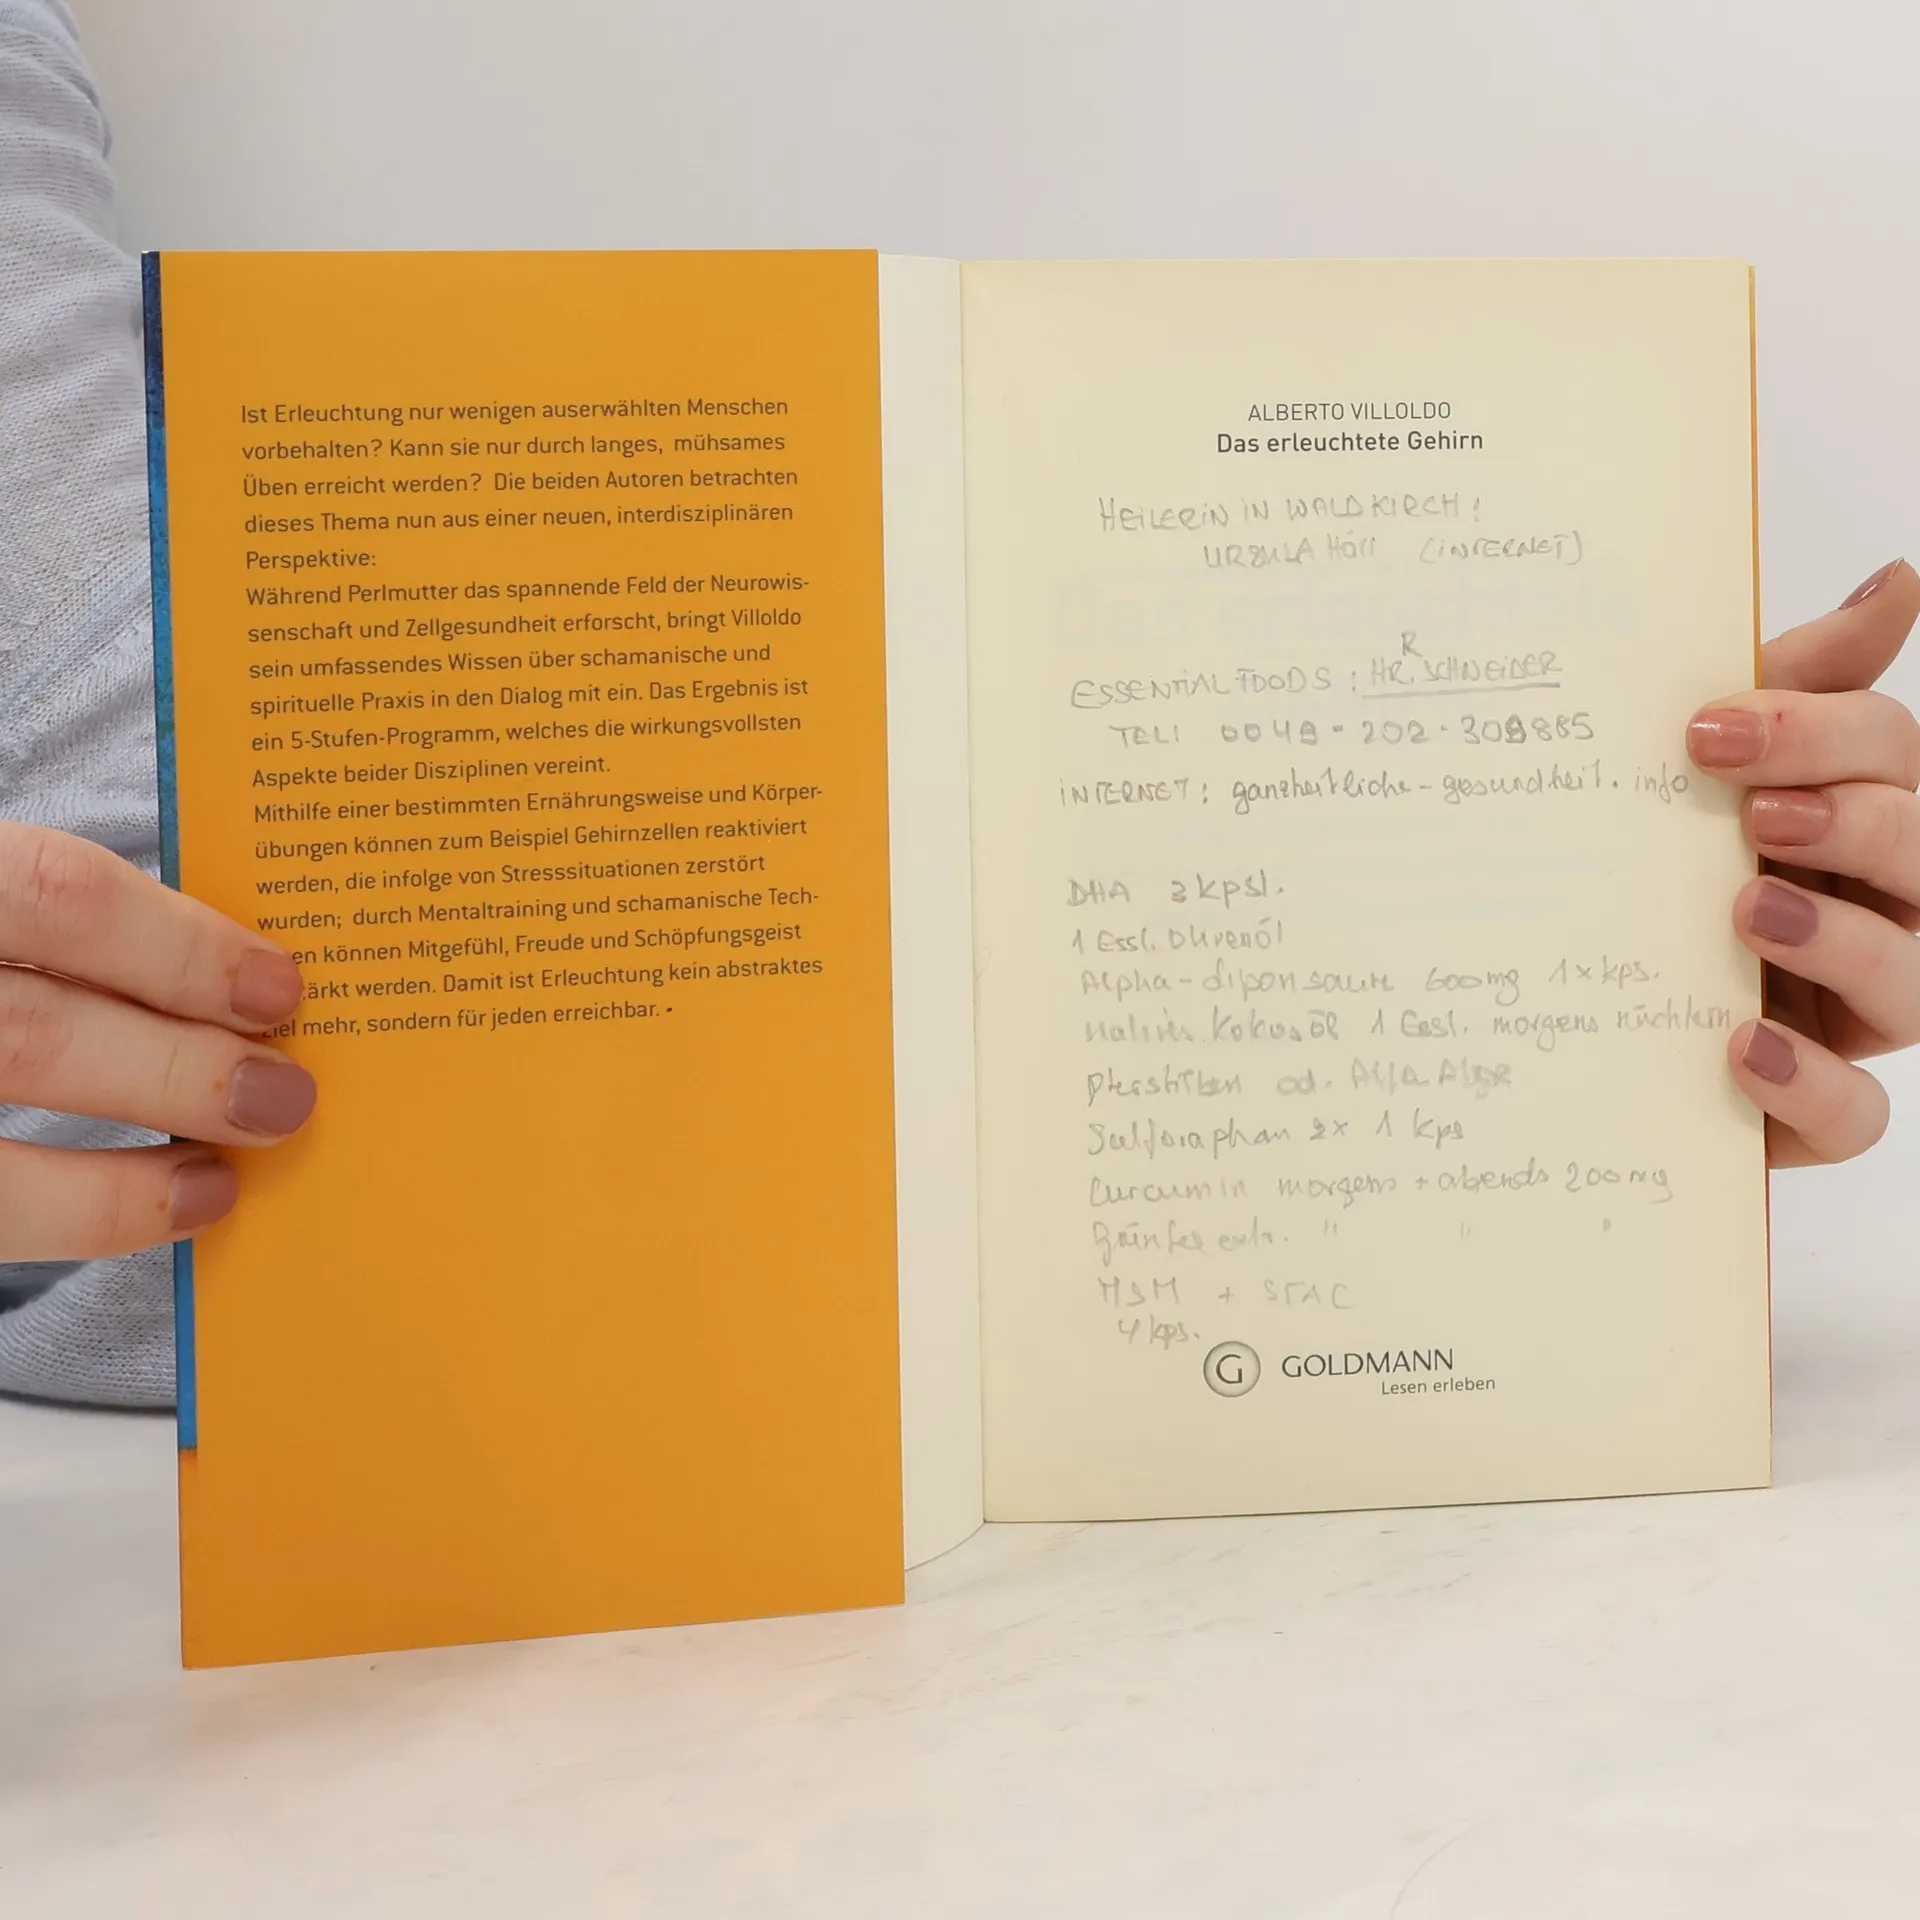 Ist Erleuchtung nur wenigen auserwählten Menschen
vorbehalten? Kann sie nur durch langes, mühsames
Üben erreicht werden? Die beiden Autoren betrachten
dieses Thema nun aus einer neuen, interdisziplinären
Perspektive:
Während Perlmutter das spannende Feld der Neurowis-
senschaft und Zellgesundheit erforscht, bringt Villoldo
sein umfassendes Wissen über schamanische und
spirituelle Praxis in den Dialog mit ein. Das Ergebnis ist
ein 5-Stufen-Programm, welches die wirkungsvollsten
Aspekte beider Disziplinen vereint.
Mithilfe einer bestimmten Ernährungsweise und Körper-
übungen können zum Beispiel Gehirnzellen reaktiviert
werden, die infolge von Stresssituationen zerstört
wurden; durch Mentaltraining und schamanische Tech-
en können Mitgefühl, Freude und Schöpfungsgeist
ärkt werden. Damit ist Erleuchtung kein abstraktes
Ziel mehr, sondern für jeden erreichbar. •
ALBERTO VILLOLDO
Das erleuchtete Gehirn
HEILERIN IN WALDKIRCH!
URSULA (INTERNET)
R
ESSENTIAL FOODS: HR. SCHNEIDER
TEL: 0049-202-309865
INTERNET: ganzheitliche-gesundheit.info
DHA 3 kpsl.
1 Essl. Olivenöl
Alpha-liponsäure 600mg 1x kps.
natives Kokosöl 1 Essl. morgens nüchtern
od.
Sulforaphan 2x 1 kps
Curcumin morgens + abends 200mg
Grüntee extr. " " "
MSM + STAC
4 kps.
G GOLDMANN
Lesen erleben